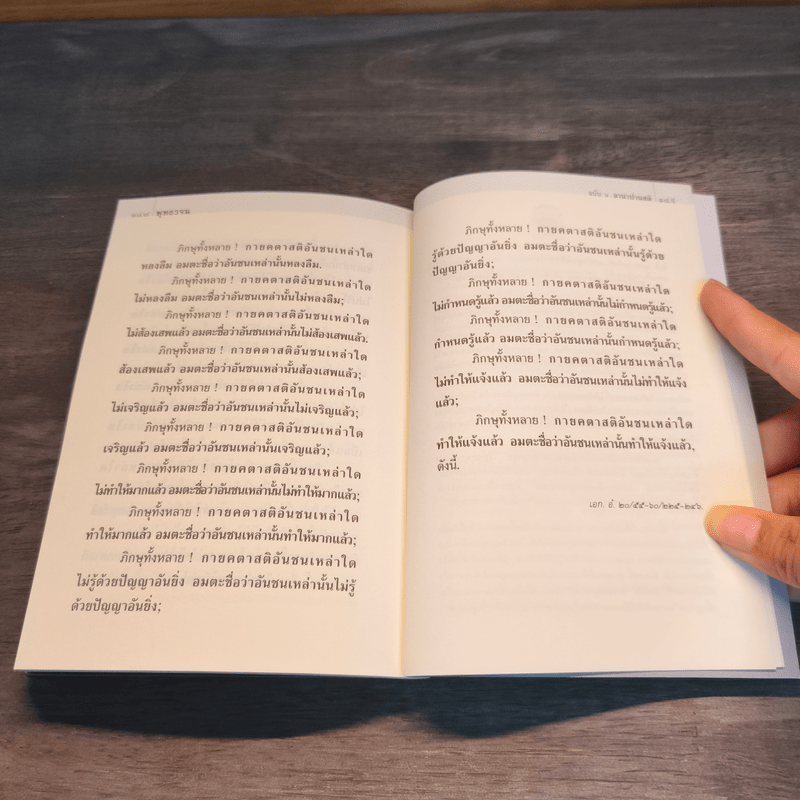 ๒๔๘ พุทธวจน
ภิกษุทั้งหลาย ! กายคตาสติอันชนเหล่าใด
หลงลืม อมตะชื่อว่าอันชนเหล่านั้นหลงลืม.
ภิกษุทั้งหลาย ! กายคตาสติอันชนเหล่าใด
ไม่หลงลืม อมตะชื่อว่าอันชนเหล่านั้นไม่หลงลืม;
ภิกษุทั้งหลาย ! กายคตาสติอันชนเหล่าใด
ไม่ส้องเสพแล้ว อมตะชื่อว่าอันชนเหล่านั้นไม่ส้องเสพแล้ว.
ภิกษุทั้งหลาย ! กายคตาสติอันชนเหล่าใด
ส้องเสพแล้ว อมตะชื่อว่าอันชนเหล่านั้นส้องเสพแล้ว;
ภิกษุทั้งหลาย ! กายคตาสติอันชนเหล่าใด
ไม่เจริญแล้ว อมตะชื่อว่าอันชนเหล่านั้นไม่เจริญแล้ว;
ภิกษุทั้งหลาย ! กายคตาสติอันชนเหล่าใด
เจริญแล้ว อมตะชื่อว่าอันชนเหล่านั้นเจริญแล้ว;
ภิกษุทั้งหลาย ! กายคตาสติอันชนเหล่าใด
ไม่ทำให้มากแล้ว อมตะชื่อว่าอันชนเหล่านั้นไม่ทำให้มากแล้ว;
ภิกษุทั้งหลาย ! กายคตาสติอันชนเหล่าใด
ทำให้มากแล้ว อมตะชื่อว่าอันชนเหล่านั้นทำให้มากแล้ว;
ภิกษุทั้งหลาย ! กายคตาสติอันชนเหล่าใด
ไม่รู้ด้วยปัญญาอันยิ่ง อมตะชื่อว่าอันชนเหล่านั้นไม่รู้
ด้วยปัญญาอันยิ่ง;
ฉบับ ๖ อานาปานสติ ๒๔๙
ภิกษุทั้งหลาย ! กายคตาสติอันชนเหล่าใด
รู้ด้วยปัญญาอันยิ่ง อมตะชื่อว่าอันชนเหล่านั้นรู้ด้วย
ปัญญาอันยิ่ง;
ภิกษุทั้งหลาย ! กายคตาสติอันชนเหล่าใด
ไม่กำหนดรู้แล้ว อมตะชื่อว่าอันชนเหล่านั้นไม่กำหนดรู้แล้ว;
ภิกษุทั้งหลาย ! กายคตาสติอันชนเหล่าใด
กำหนดรู้แล้ว อมตะชื่อว่าอันชนเหล่านั้นกำหนดรู้แล้ว;
ภิกษุทั้งหลาย ! กายคตาสติอันชนเหล่าใด
ไม่ทำให้แจ้งแล้ว อมตะชื่อว่าอันชนเหล่านั้นไม่ทำให้แจ้ง
แล้ว;
ภิกษุทั้งหลาย ! กายคตาสติอันชนเหล่าใด
ทำให้แจ้งแล้ว อมตะชื่อว่าอันชนเหล่านั้นทำให้แจ้งแล้ว,
ดังนี้.
เอก. อํ. ๒๐/๕๕-๖๐/๒๒๕-๒๔๖.